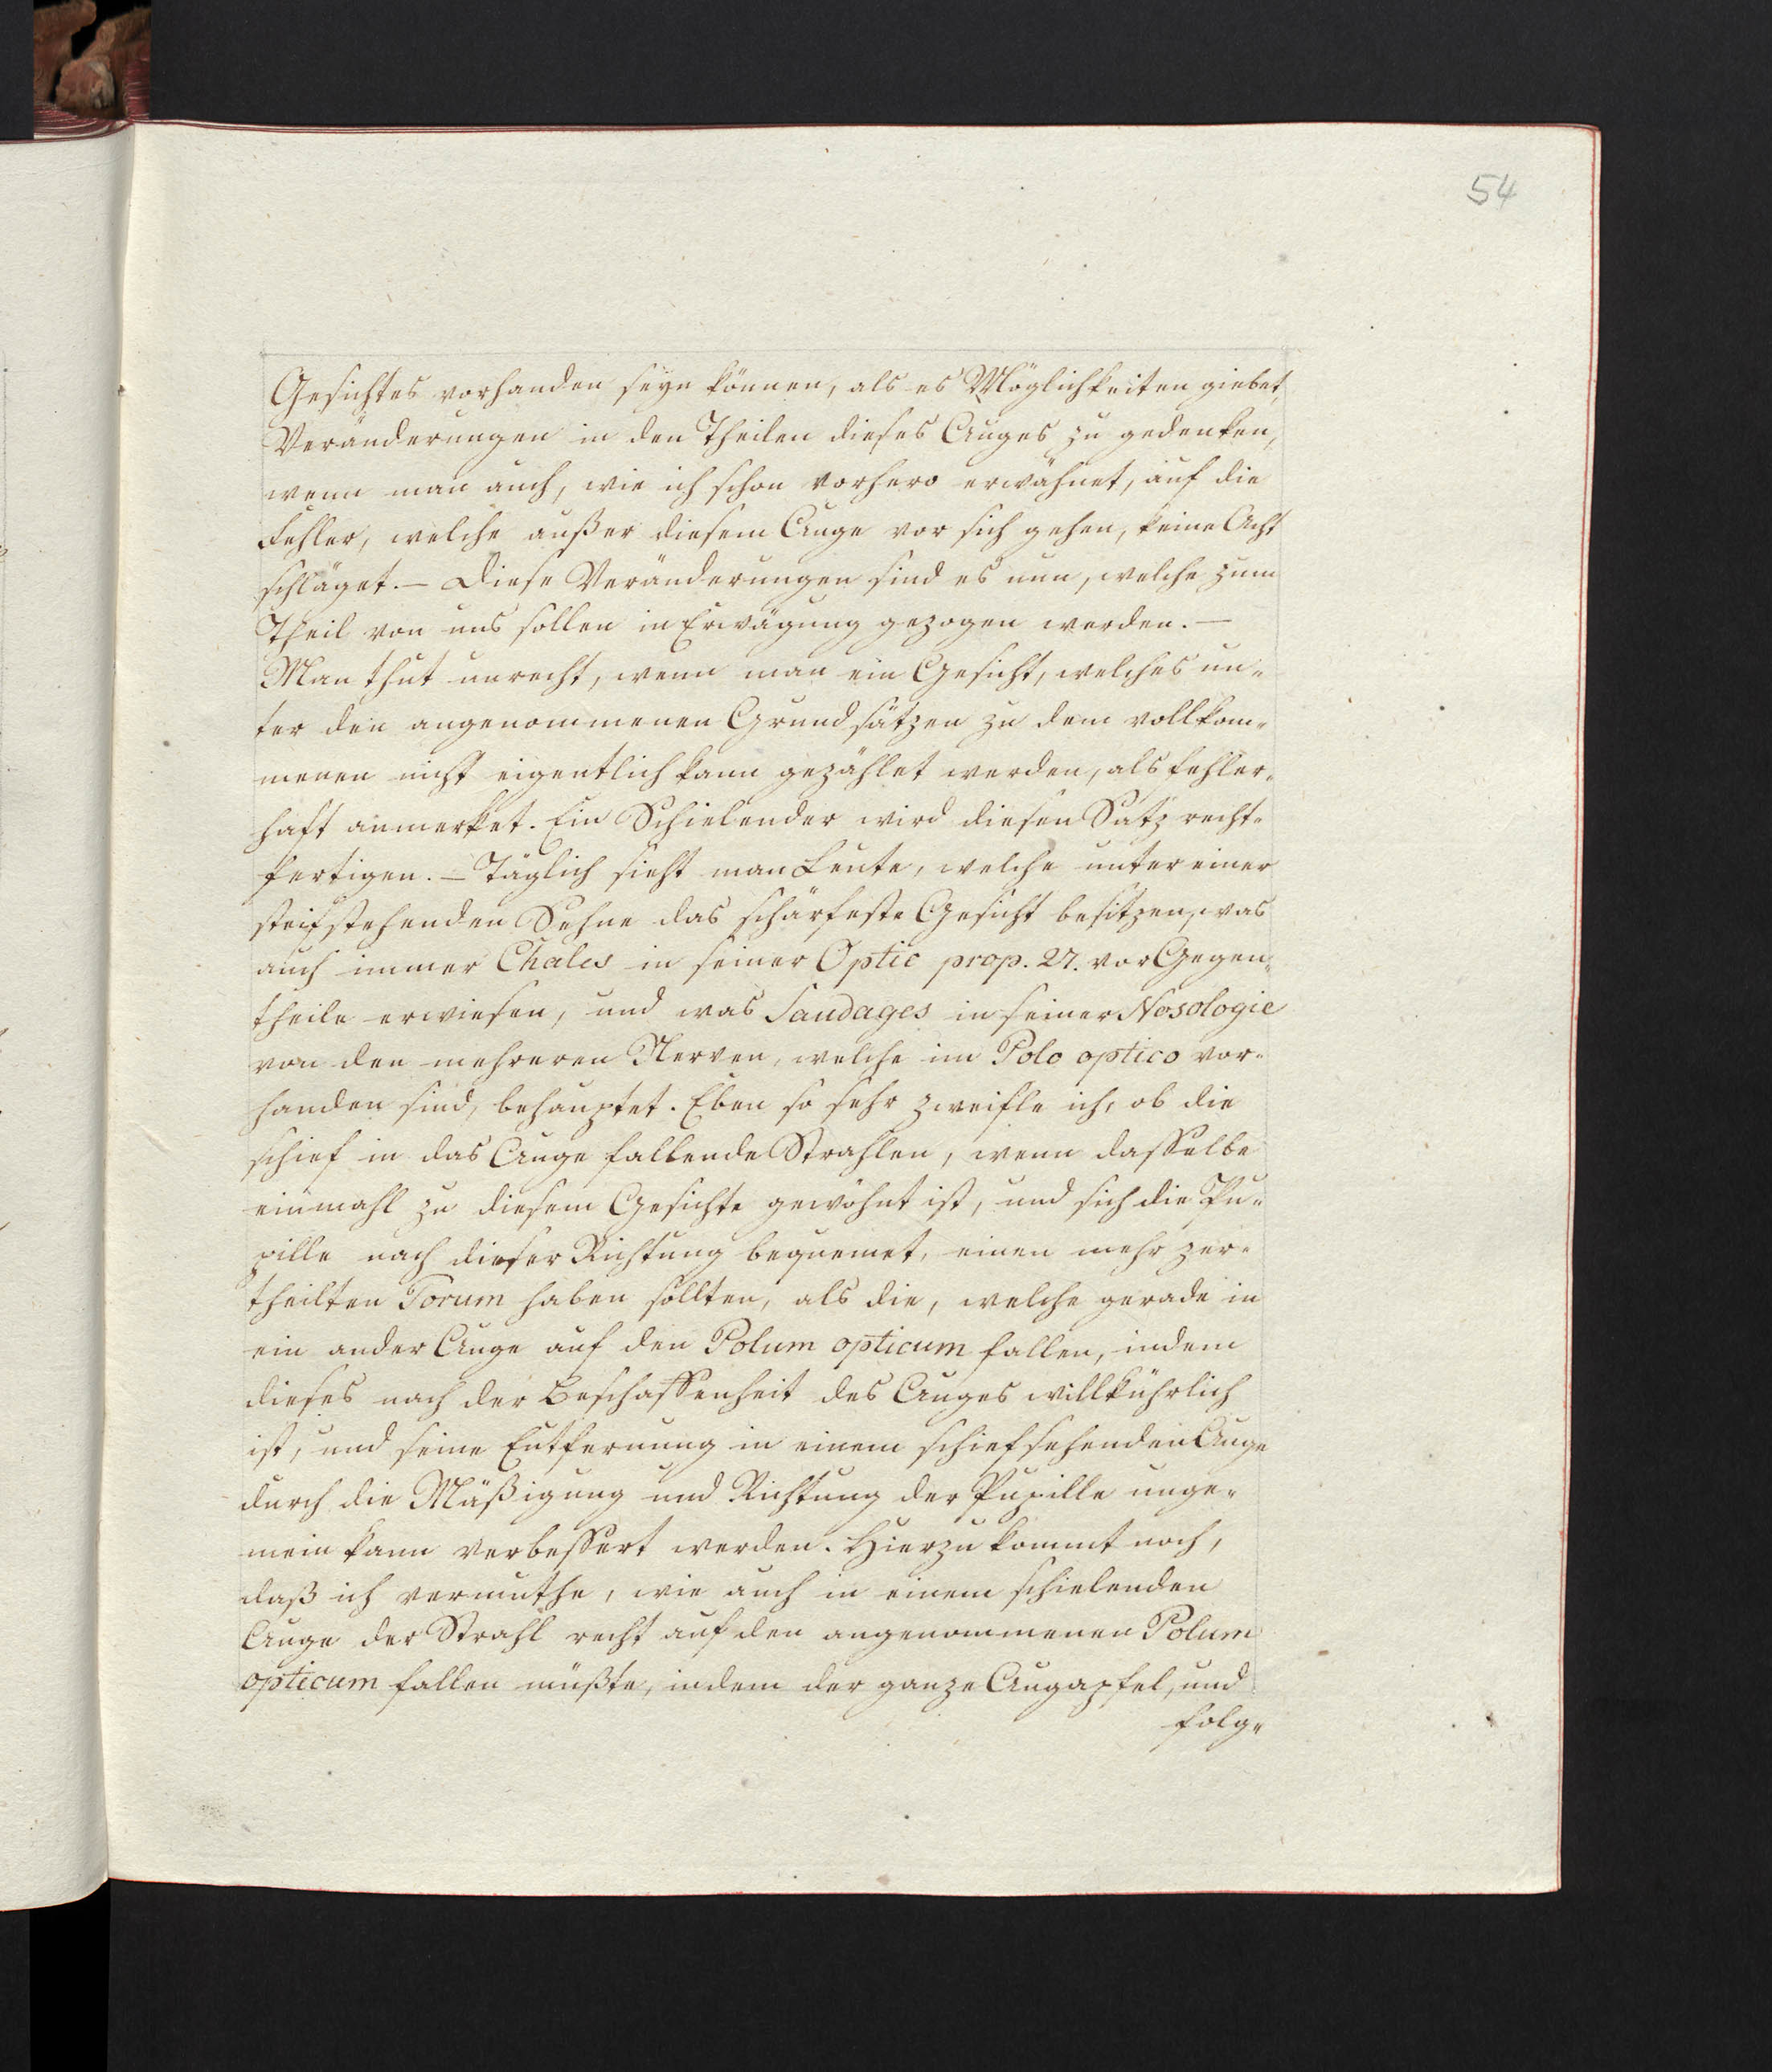 54
Gesichtes vorhanden seyn können, als es Möglichkeiten giebet,
Veränderungen in den Theilen dieses Auges zu gedenken,
wenn man auch, wie ich schon vorhero erwähnet, auf die
Fehler, welche außer diesem Auge vor sich gehen, keine Acht
schläget. – Diese Veränderungen sind es nun, welche zum
Theil von uns sollen in Erwägung gezogen werden. –
Man thut unrecht, wenn man ein Gesicht, welches un-
ter den angenommenen Grundsätzen zu dem vollkom-
menen nicht eigentlich kann gezählet werden, als fehler-
haft anmerket. Ein Schielender wird diesen Satz recht-
fertigen. – Täglich sieht man Leute, welche unter einer
steifstehenden Sehne das schärfeste Gesicht besitzen, was
auch immer Chales in seiner Optic prop. 27. vor Gegen-
theile erwiesen, und was Saudages in seiner Nosologie
von den mehreren Nerven, welche im Polo optico vor-
handen sind, behauptet. Eben so sehr zweifle ich, ob die
schief in das Auge fallende Strahlen, wenn dasselbe
einmahl zu diesem Gesichte gewöhnt ist, und sich die Pu-
pille nach dieser Richtung bequemet, einen mehr zer-
theilten Torum haben sollten, als die, welche gerade in
ein ander Auge auf den Polum opticum fallen, indem
dieses nach der Beschaffenheit des Auges willkührlich
ist, und seine Entfernung in einem schiefsehenden Auge
durch die Mäßigung und Richtung der Pupille unge-
mein kann verbessert werden. Hierzu kommt noch,
daß ich vermuthe, wie auch in einem schielenden
Auge der Strahl recht auf den angenommenen Polum
opticum fallen müßte, indem der ganze Augapfel, und
folg-